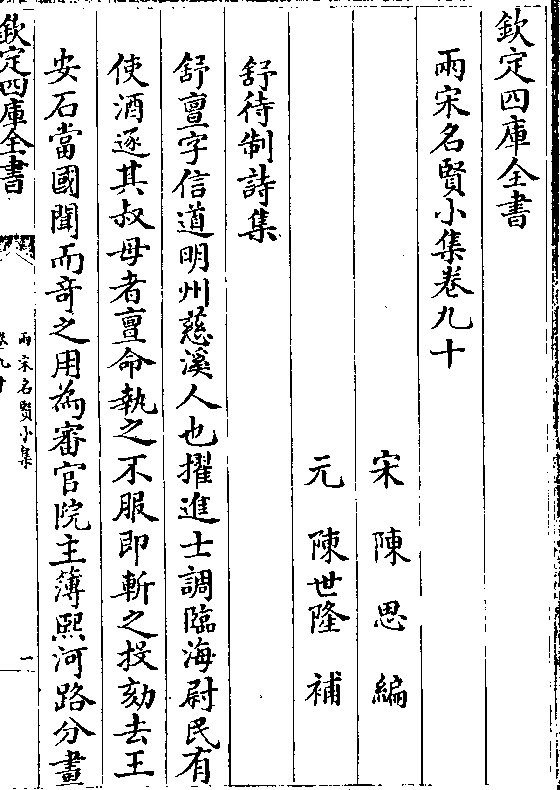 欽定四庫全書
兩宋名賢小集卷九十
宋陳思編
元陳世隆補
舒待制詩集
舒亶字信道明州慈溪人也擢進士調臨海尉民有
使酒逐其叔母者亶命執之不服即斬之投劾去王
安石當國聞而竒之用為審官院主簿熙河路分畫
欽定四庫全書
兩宋名賢小集
卷九十
一